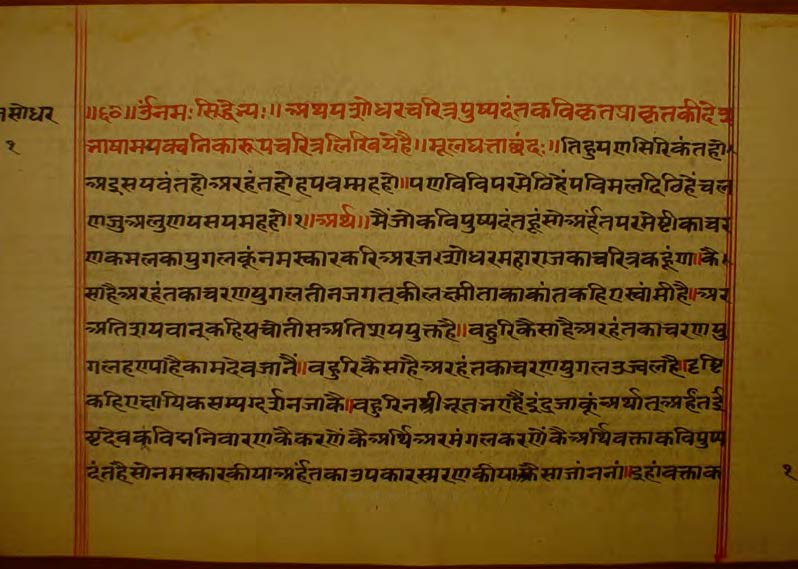 जसोधर
१
॥६०॥ॐनमःसिद्धेभ्यः॥अथयशोधरचरित्रपुष्पदंतकविकृतप्राकृतकीदेश
भाषामयवचनिकारूपचरित्रलिखियेहै॥मूलघत्ताछंदः॥तिहुपणसिरिकंतहो
अइसयवंतहोअरहंतहोहयवम्महहो॥पणविविपरमेठिहेंपविमलदिठिहेंचल
णजुअलुणयसयमहहो॥१॥अर्थ॥मैंजोकविपुष्पदंतहूंसोअर्हंतपरमेष्टीकाचर
णकमलकायुगलकूंनमस्कारकरिअरजशोधरमहाराजकाचरित्रकहूंगा॥कै
साहैअरहंतकाचरणयुगलतीनजगत्कीलक्ष्मीताकाकांतकहिएस्वामीहै॥अर
अतिशयवान्कहिएचौतीसअतिशययुक्तहै॥बहुरिकैसाहैअरहंतकाचरणयु
गलहण्याहैकामदेवजानैं॥बहुरिकैसाहैअरहंतकाचरणयुगलउज्वलहै॥दृष्टि
कहिएक्षायिकसम्यग्दर्शनजाकै॥बहुरिनम्रीभूतभएहैइंद्रजाकूंअर्थात्अर्हंतई
ष्टदेवकूंविघ्ननिवारणकैकरणेंकैअर्थिअरमंगलकरणेंकैअर्थिवक्ताकविपुष्प
दंतहैसोनमस्कारकीयाअर्हंतकाउपकारस्मरणकीयाकैसाजांननां॥इहांवक्ताक
१